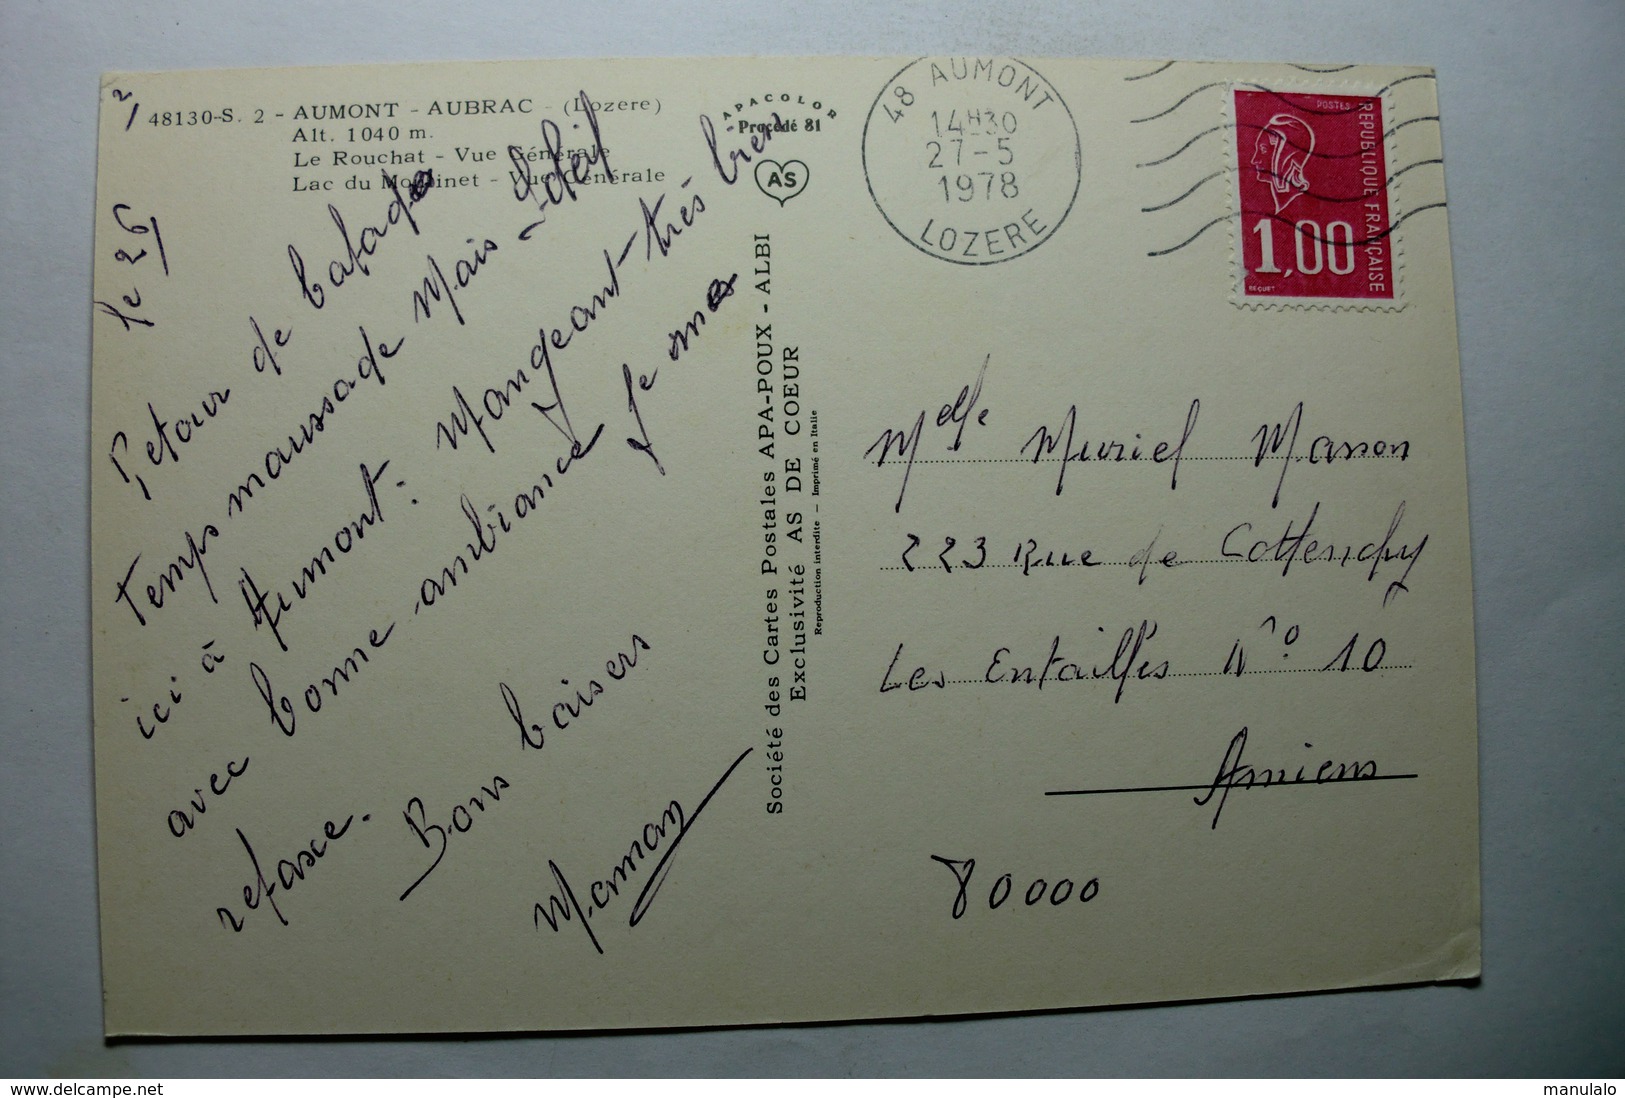 48130-S. 2 - AUMONT - AUBRAC - (Lozere)
Alt. 1040 m.
Le Rouchat - Vue Générale
Lac du Moulinet - Vue Générale
APACOLOR
Procédé 81
AS
2/
le 26
Retour de balade
temps maussade Mais soleil
ici à Aumont. Mangeant très bien
avec bonne ambiance Je me
refasce.
Bons baisers
Maman
Société des Cartes Postales APA-POUX - ALBI
Exclusivité AS DE COEUR
Reproduction interdite — Imprimé en Italie
48 AUMONT
14H30
27-5
1978
LOZERE
POSTES
REPUBLIQUE FRANÇAISE
1,00
BEQUET
Melle Muriel Masson
223 Rue de Cottenchy
Les Entailles N° 10
Amiens
80000
https://www.delcampe.net
manulalo